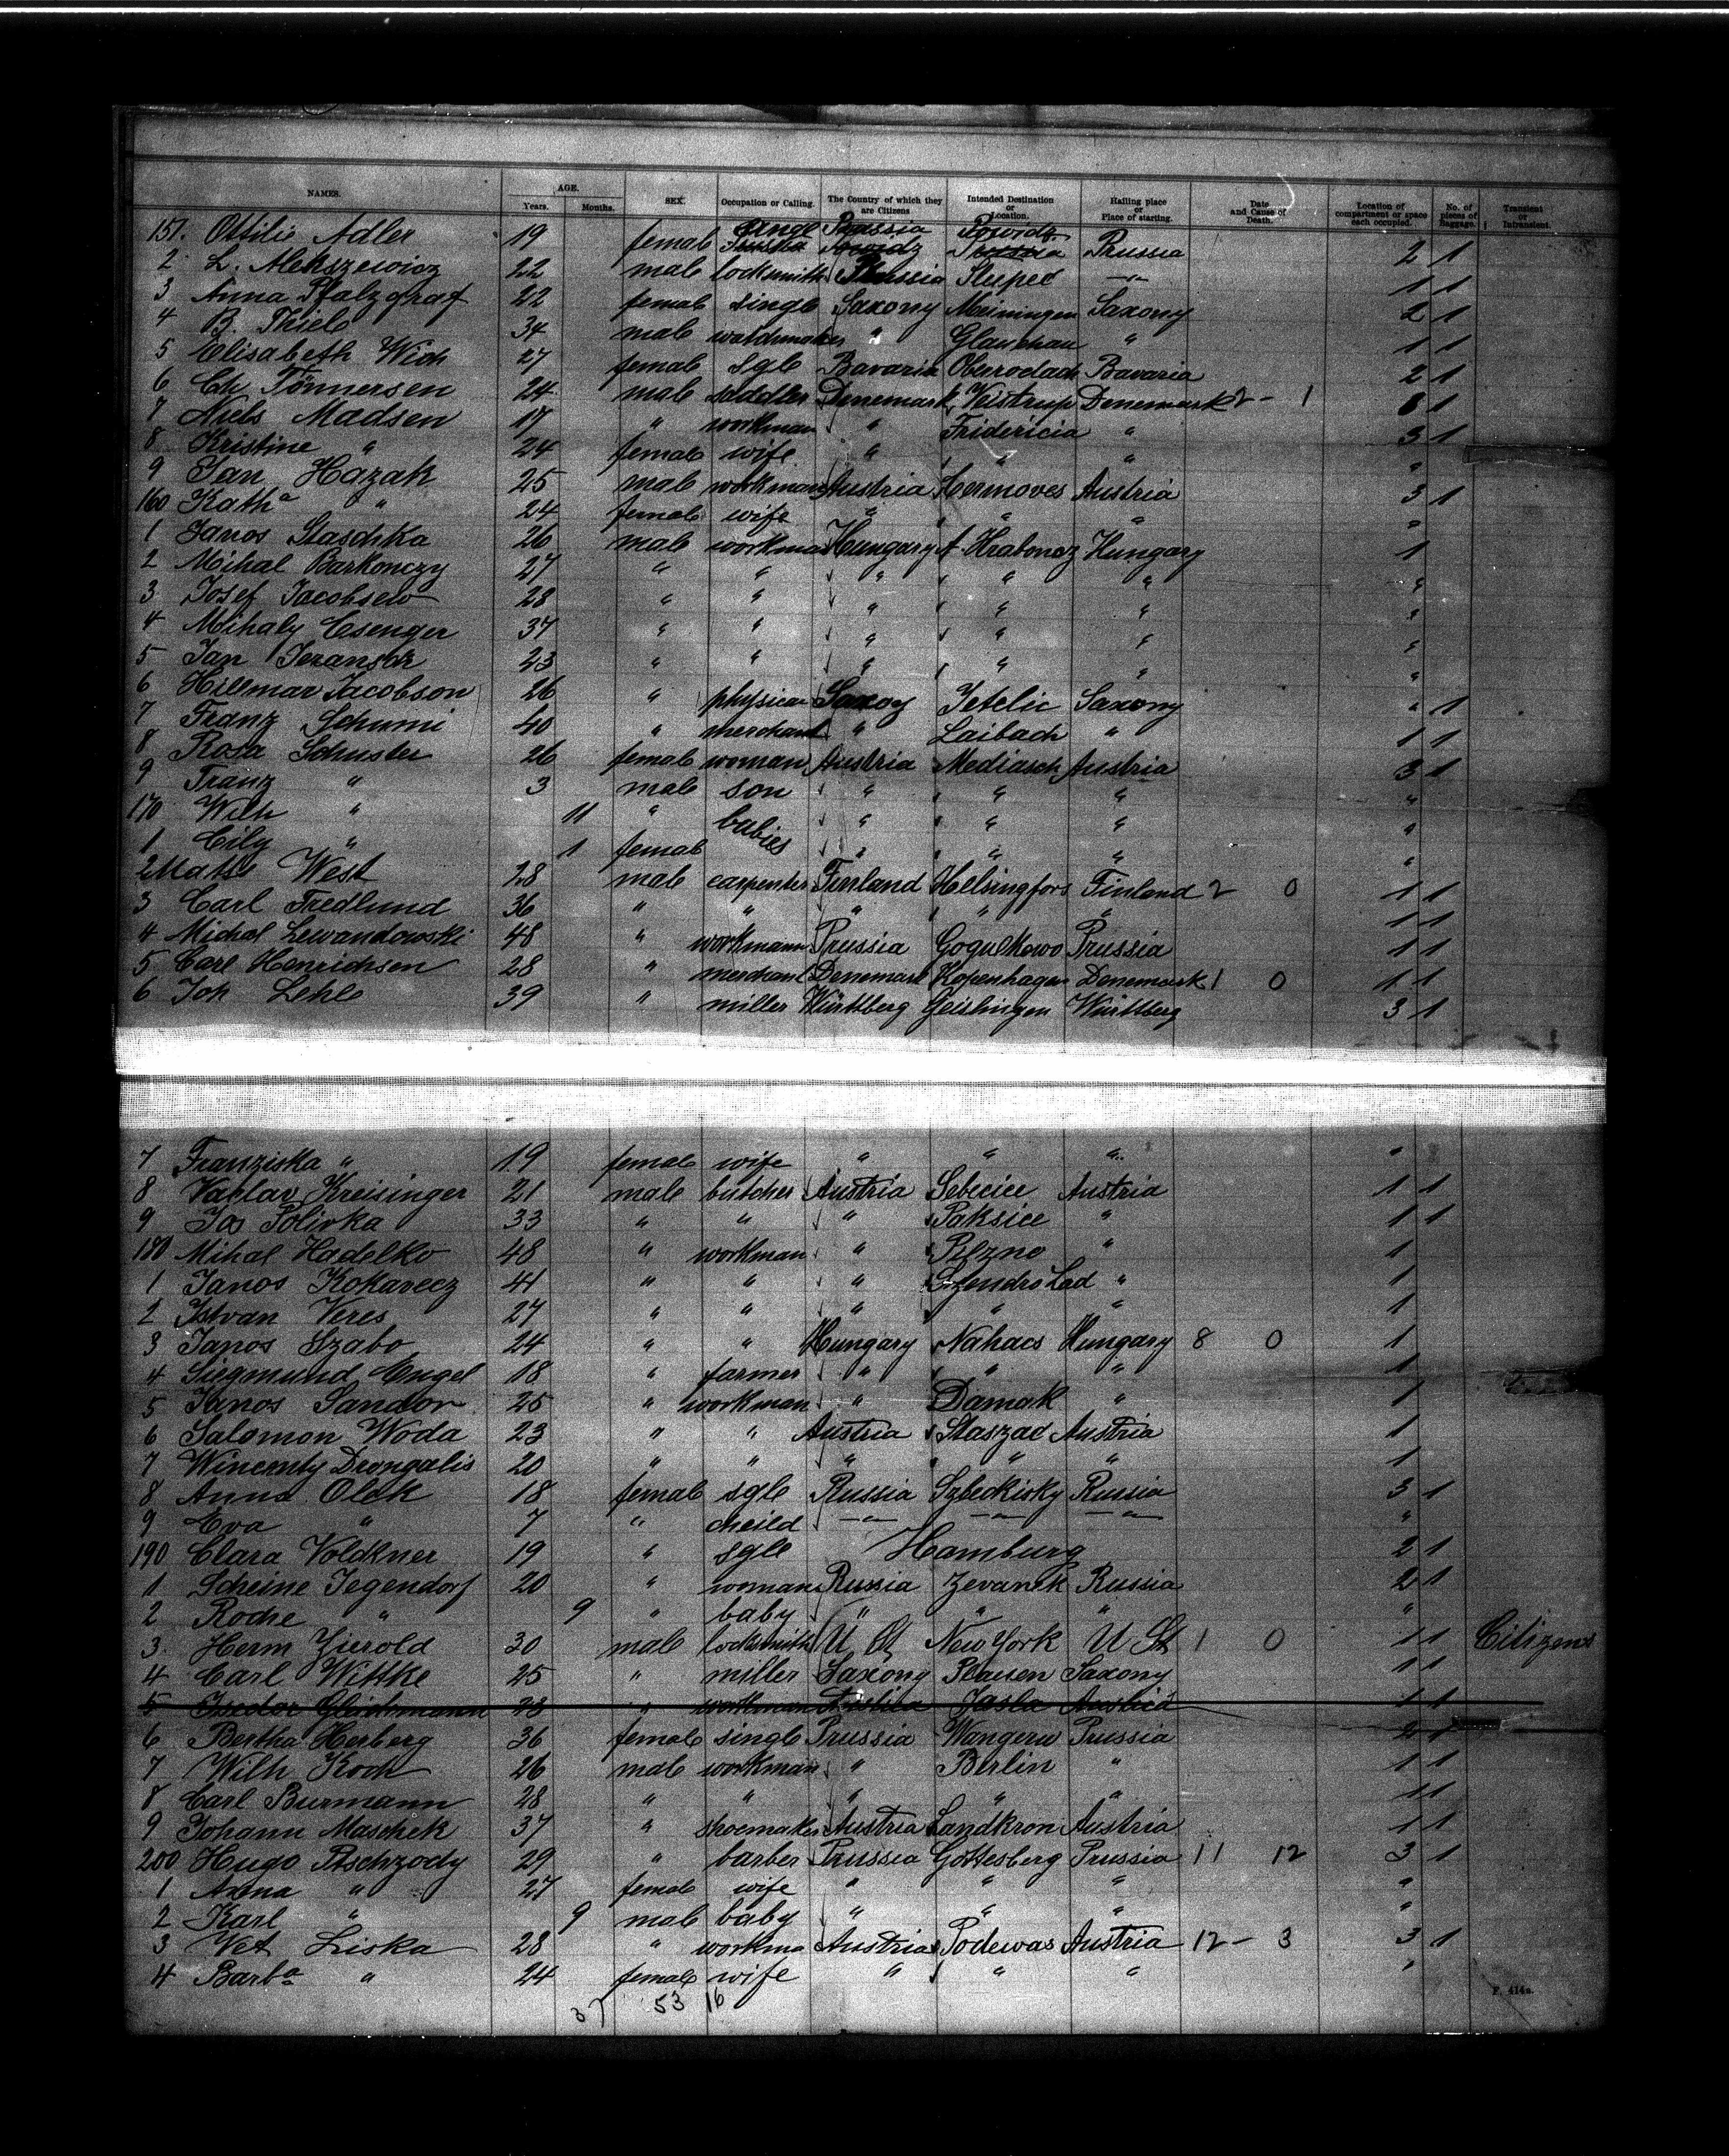 NAMES. AGE. Years. Months. SEX. Occupation or Calling. The Country of which they are Citizens Intended Destination or Location. Hailing place or Place of starting. Date and Cause of Death. Location of compartment or space each occupied. No. of pieces of Baggage. Transient or Intransient.
151. Ottilie Adler 19 female single Prussia Powidz Prussia 2 1
2 L. Alekszewicz 22 male locksmith Russia Sleuped —"— 1 1
3 Anna Pfalzgraf 22 female single Saxony Meiningen Saxony 2 1
4 B. Thiele 34 male watchmaker " Glauchau " 1 1
5 Elisabeth Wich 27 female sgle Bavaria Oberrodach Bavaria 2 1
6 Ch Tönnersen 24 male saddler Denemark Veistrup Denemark 2 - 1 1
7 Niels Madsen 17 " workman " Fridericia " 3 1
8 Kristine " 24 female wife " " " "
9 Jan Hazak 25 male workman Austria Hermoves Austria 3 1
160 Katha " 24 female wife " " " "
1 Janos Staschka 26 male workman Hungary A. Hrabonez Hungary 1
2 Mihal Barkonczy 27 " " " " " "
3 Josef Jacobsew 28 " " " " " "
4 Mihaly Csenger 37 " " " " " "
5 Jan 23 " " " " " "
6 Hillmar Jacobson 26 " physican Saxoy Saxony " 1
7 Franz Schumi 40 " merchant " Laibach " 1 1
8 Rosa Schuster 26 female woman Austria Mediasch Austria 3 1
9 Franz " 3 male son " " " "
170 Wilh " 11 " babies " " " "
1 Cily " 1 female " " " "
2 Matts West 28 male carpenter Finland Helsingfors Finland 2 0 1 1
3 Carl Fredlund 36 " " " " " 1 1
4 Michal Lewandowski 48 " workmann Prussia Gogulkowo Prussia 1 1
5 Carl Henrichsen 28 " merchant Denemark Kopenhagen Denemark 1 0 1 1
6 Joh Lehle 39 " miller Württberg Geislingen Württberg 3 1
7 Franziska " 19 female wife " " " "
8 Vaklav Kreisinger 21 male butcher Austria Sebecice Austria 1 1
9 Jos Polivka 33 " " " Paksice " 1 1
180 Mihal Hadelko 48 " workman " Pilzno " 1
1 Janos Kokavecz 41 " " " Szendro Lad " 1
2 Istvan Veres 27 " " " " " 1
3 Janos Szabo 24 " " Hungary Nahacs Hungary 8 0 1
4 Siegmund Engel 18 " farmer " " " 1
5 Janos Sandor 25 " workman " Damak " 1
6 Salomon Woda 23 " " Austria Staszad Austria 1
7 Wincenty Drongalis 20 " " " " " 1
8 Anna Olek 18 female sgle Russia Szbeckisky Russia 3 1
9 Eva " 7 " cheild —"— —"— —"— "
190 Clara Voldkner 19 " sgle Hamburg 2 1
1 Scheine Jegendorf 20 " woman Russia Zevanek Russia 2 1
2 Roche " 9 " baby " " " "
3 Herm Zierold 30 male locksmith U St New York U St 1 0 1 1 Citizens
4 Carl Wittke 25 " miller Saxony Plauen Saxony 1 1
5 Isedor Gleichmann 23 " workman Austria Jasla Austria 1 1
6 Bertha Herberg 36 female single Prussia Wangeru Prussia 2 1
7 Wilh Koch 26 male workman " Berlin " 1 1
8 Carl Burmann 28 " " " " " 1 1
9 Johann Maschek 37 " shoemaker Austria Landkron Austria 1 1
200 Hugo Ptschzody 29 " barber Prussia Gottesberg Prussia 11 12 3 1
1 Anna " 27 female wife " " " "
2 Karl " 9 male baby " " " "
3 Vet Liska 28 " workma Austria Podewas Austria 12 - 3 3 1
4 Barba " 24 female wife " " " "
37 53 16
F. 414a.